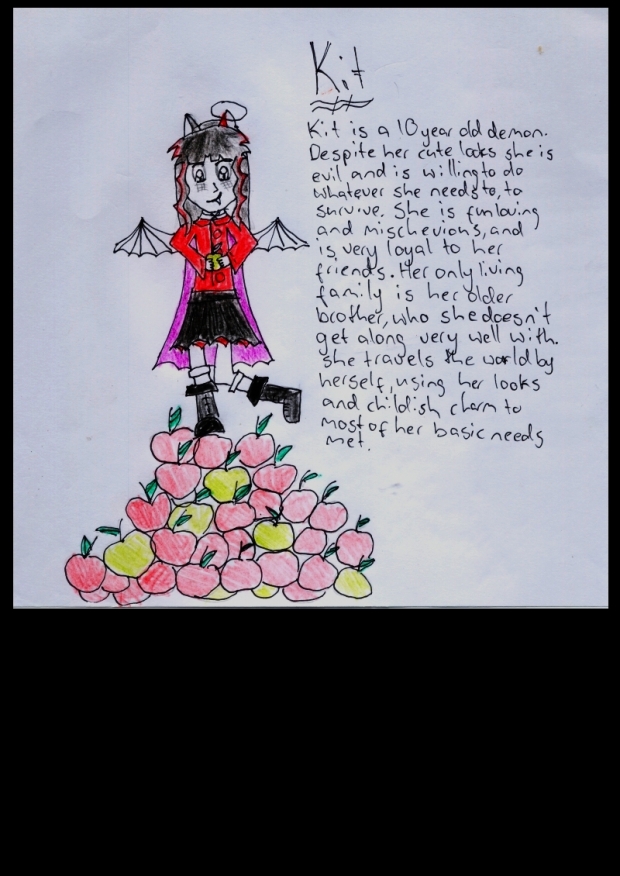 Kit
Kit is a 10 year old demon.
Despite her cute looks she is
evil and is willing to do
whatever she needs to, to
survive. She is fun loving
and mischevious, and
is very loyal to her
friends. Her only living
family is her older
brother, who she doesn't
get along very well with.
she travels the world by
herself, using her looks
and childish charm to
most of her basic needs
met.